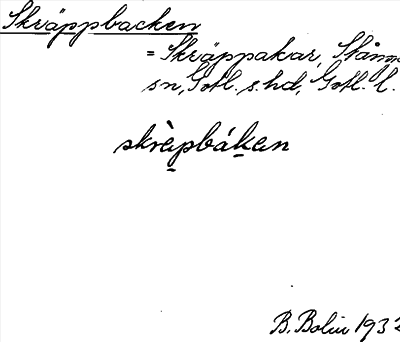 Skräppbacken
= Skräppakar, Stånn
sn, Gotl. s. hd, Gotl. l.
skràpbákan
B. Bolin 193